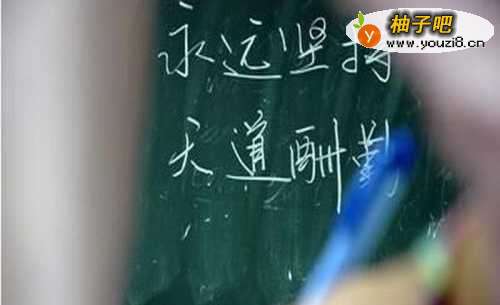 柚子吧
www.youzi8.cn
永远坚持
天道酬勤